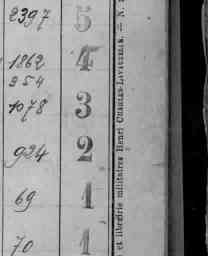 2397 5
1862 4
954
1078 3
924 2
69 1
70 1
et librairie militaires Henri CHARLES-LAVAUZELLE. — N.